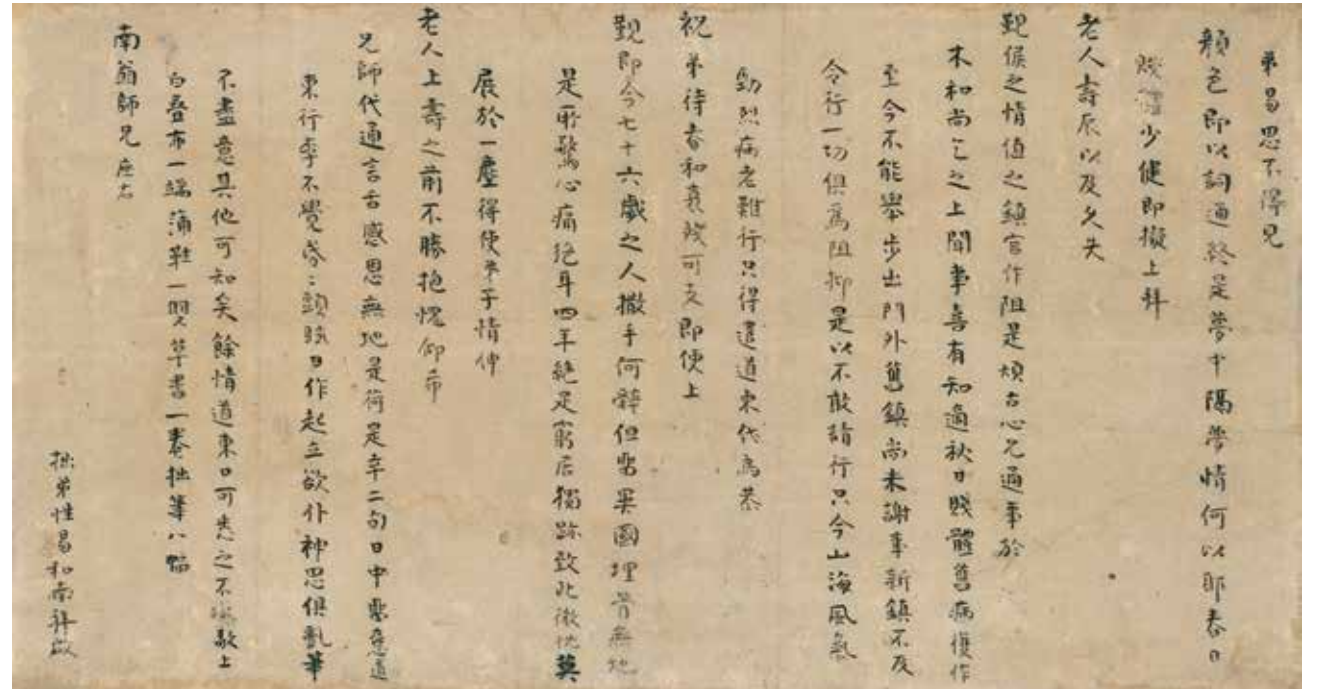 弟易思不得兄
顏色即以詞通終是夢中隔夢情何以耶春日
賤體少健即擬上拜
老人壽辰以及久失
覲候之情值之鎮官作阻是煩古心兄通事於
木和尚言之上聞事喜有知適秋日賤體舊病復作
至今不能舉步出門外舊鎮尚未謝事新鎮不及
令行一切俱為阻抑是以不敢請行只今山海風氣
勁烈病老難行只得遣道東代為恭
祝弟待春和衰殘可支即便上
覲即今七十六歲之人撒手何辭但異國埋骨無地
是所驚心痛絕耳四年絕足窮居獨跡致此微忱莫
展於一塵得使弟子情伸
老人上壽之前不勝抱愧仰希
兄師代通言舌感恩無地是荷是幸二旬日中專意道
東行李不覺昏昏頭眩日作起立欲仆神思俱亂筆
不盡意其他可知矣餘情道東口可悉之不次敬上
白疊布一端蒲鞋一雙草書一卷拙筆八幅
南翁師兄座右
拙弟性易和南拜啟